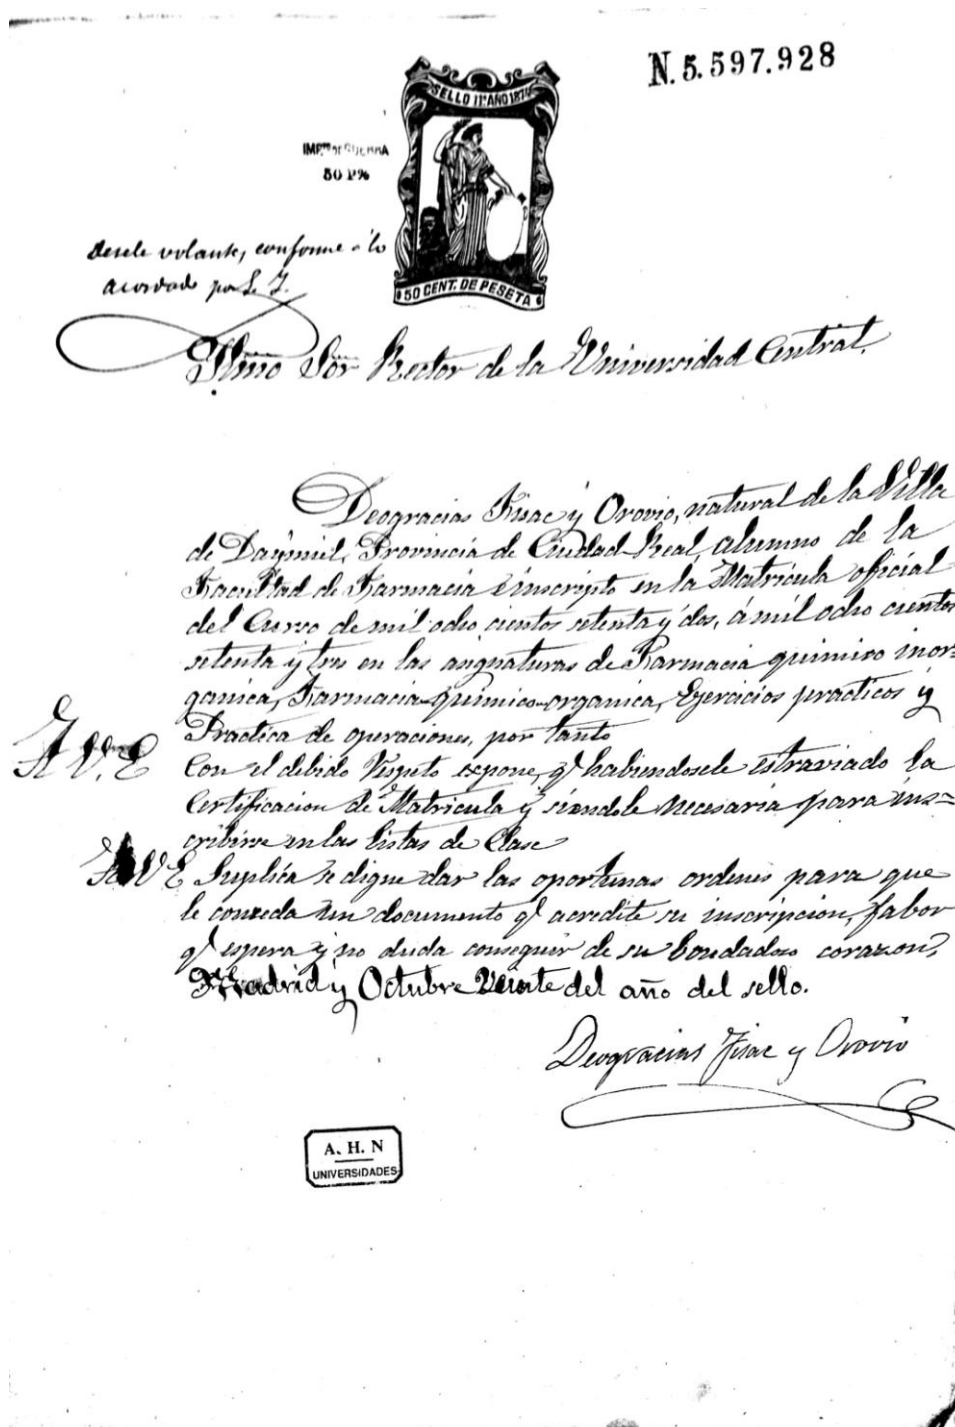 N. 5.597.928
SELLO 11º AÑO 1874
IMPto DE GUERRA
50 P%
50 CENT. DE PESETA
desele volante, conforme á lo
acordado por S. I.
Ilmo Sor Rector de la Universidad Central.
Deogracias Fisac y Orovio, natural de la Villa
de Daymiel, Provincia de Ciudad-Real, alumno de la
Facultad de Farmacia é inscripto en la Matrícula oficial
del Curso de mil ocho cientos setenta y dos, á mil ocho cientos
setenta y tres en las asignaturas de Farmacia quimico inor=
ganica, Farmacia-quimico-organica, Ejercicios practicos y
Practica de operaciones, por tanto
A V. E
Con el debido respeto expone, q.e habiendosele estraviado la
Certificacion de Matricula y siendole necesaria para ins=
cribirse en las listas de Clase
A V E Suplica se digne dar las oportunas ordenes para que
le conceda un documento q.e acredite su inscripcion, fabor
q.e espera y no duda conseguir de su bondadoso corazon,
Madrid y Octubre Veinte del año del sello.
Deogracias Fisac y Orovio
A. H. N
UNIVERSIDADES